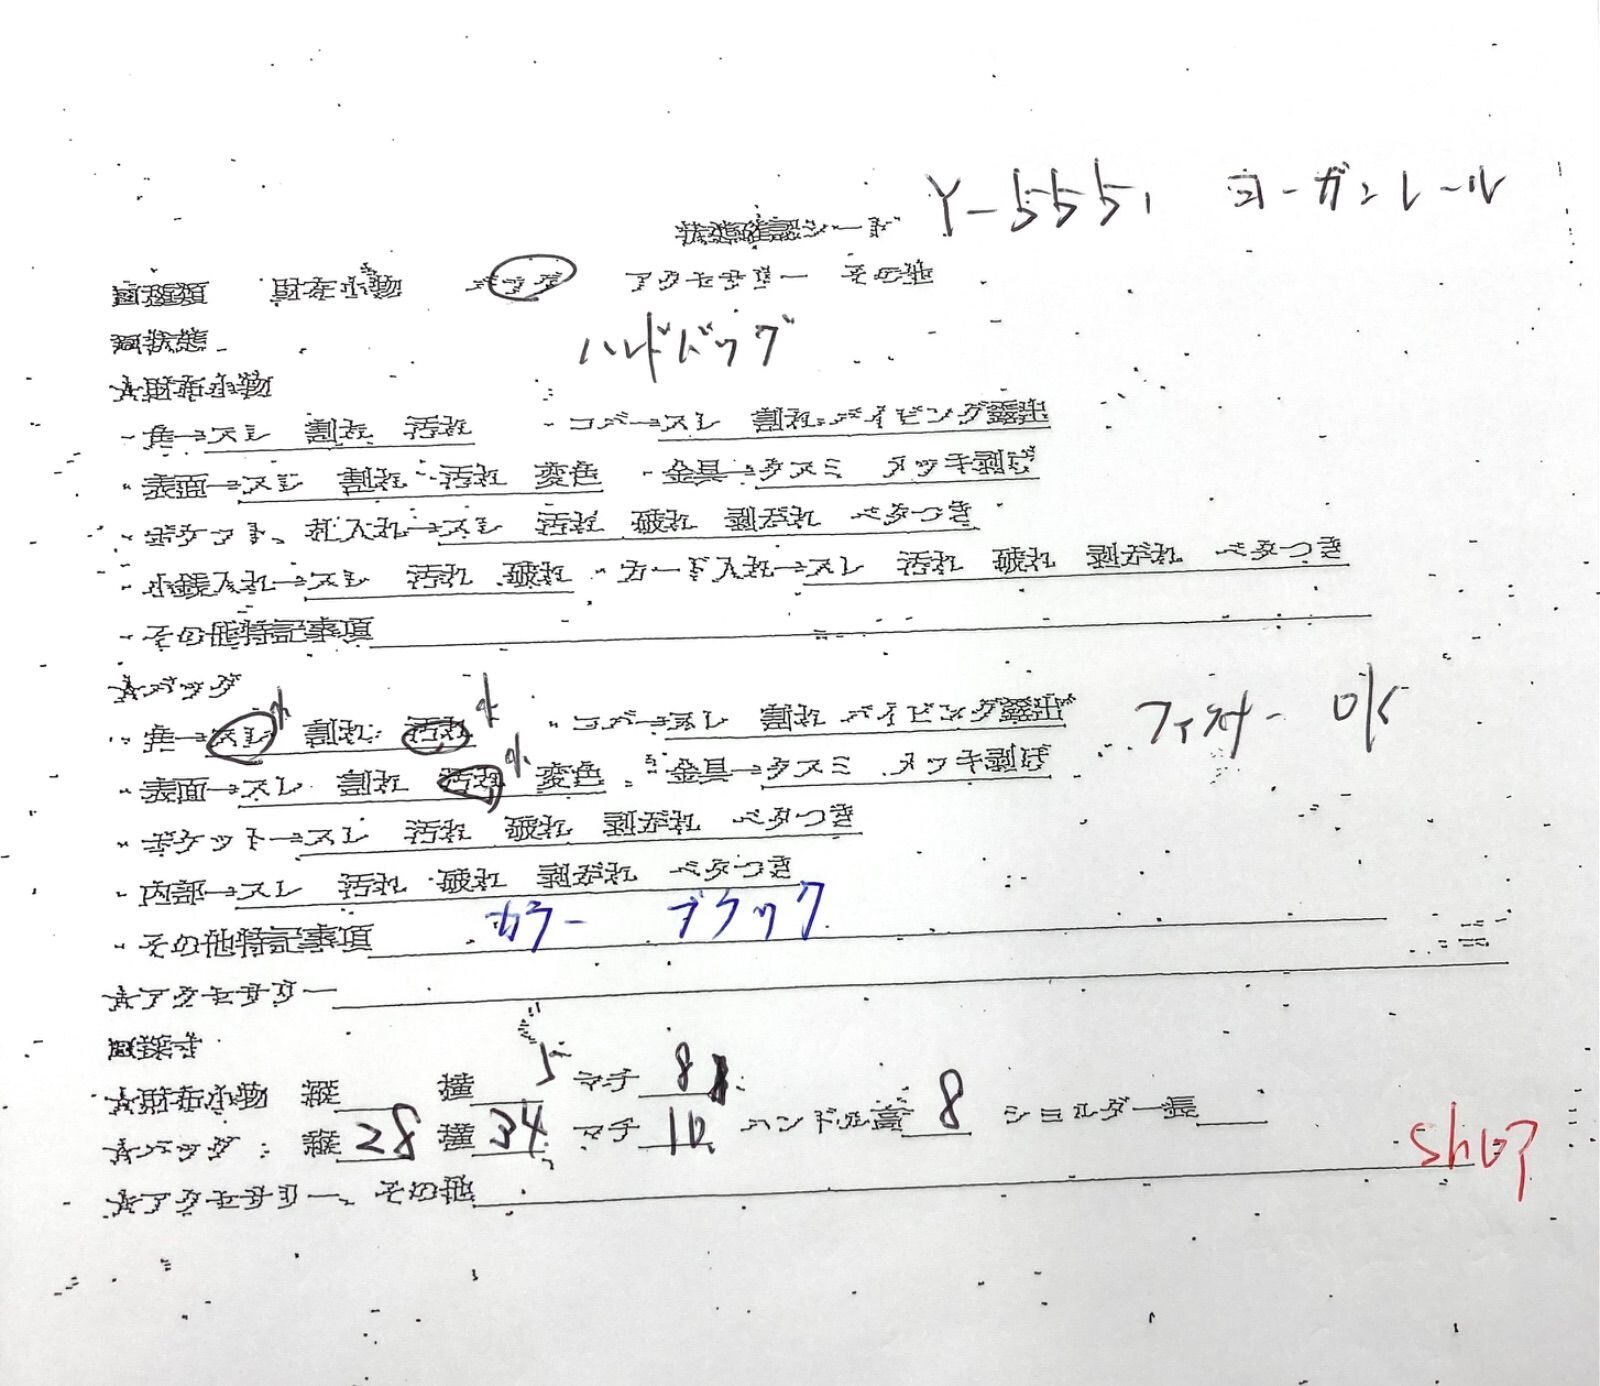 状態確認シート Y-5551 ヨーガンレール
□種類 財布小物 バッグ アクセサリー その他
□状態 ハンドバッグ
☆財布小物
・角→スレ 割れ 汚れ ・コバ→スレ 割れ パイピング露出
・表面→スレ 割れ 汚れ 変色 ・金具→クスミ メッキ剥げ
・ポケット、札入れ→スレ 汚れ 破れ 剥がれ ベタつき
・小銭入れ→スレ 汚れ 破れ ・カード入れ→スレ 汚れ 破れ 剥がれ ベタつき
・その他特記事項
☆バッグ
・角→スレ 小 割れ 汚れ 小 ・コバ→スレ 割れ パイピング露出 ファスナー OK
・表面→スレ 割れ 汚れ 小 変色 ・金具→クスミ メッキ剥げ
・ポケット→スレ 汚れ 破れ 剥がれ ベタつき
・内部→スレ 汚れ 破れ 剥がれ ベタつき
・その他特記事項 カラー ブラック
☆アクセサリー
□採寸
☆財布小物 縦 横 5 マチ 8
☆バッグ : 縦 28 横 34 マチ 10 ハンドル高 8 ショルダー長
shop
☆アクセサリー、その他